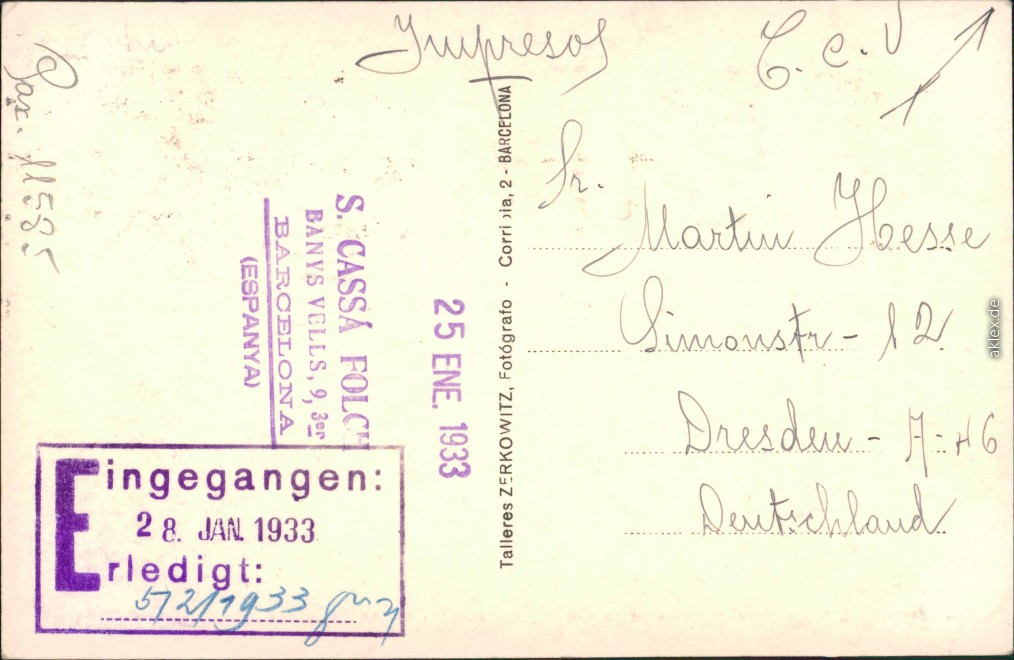 Impresos
C. C. V
11585
S. CASSÁ FOLCH
BANYS VELLS, 9, 3er
BARCELONA
(ESPANYA)
25 ENE. 1933
Talleres ZERKOWITZ, Fotógrafo - Corribia, 2 - BARCELONA
Sr.
Martin Hesse
Simonstr - 12
Dresden - A = 46
Deutschland
Eingegangen:
28. JAN. 1933
Erledigt:
5/2/1933
aklex.de